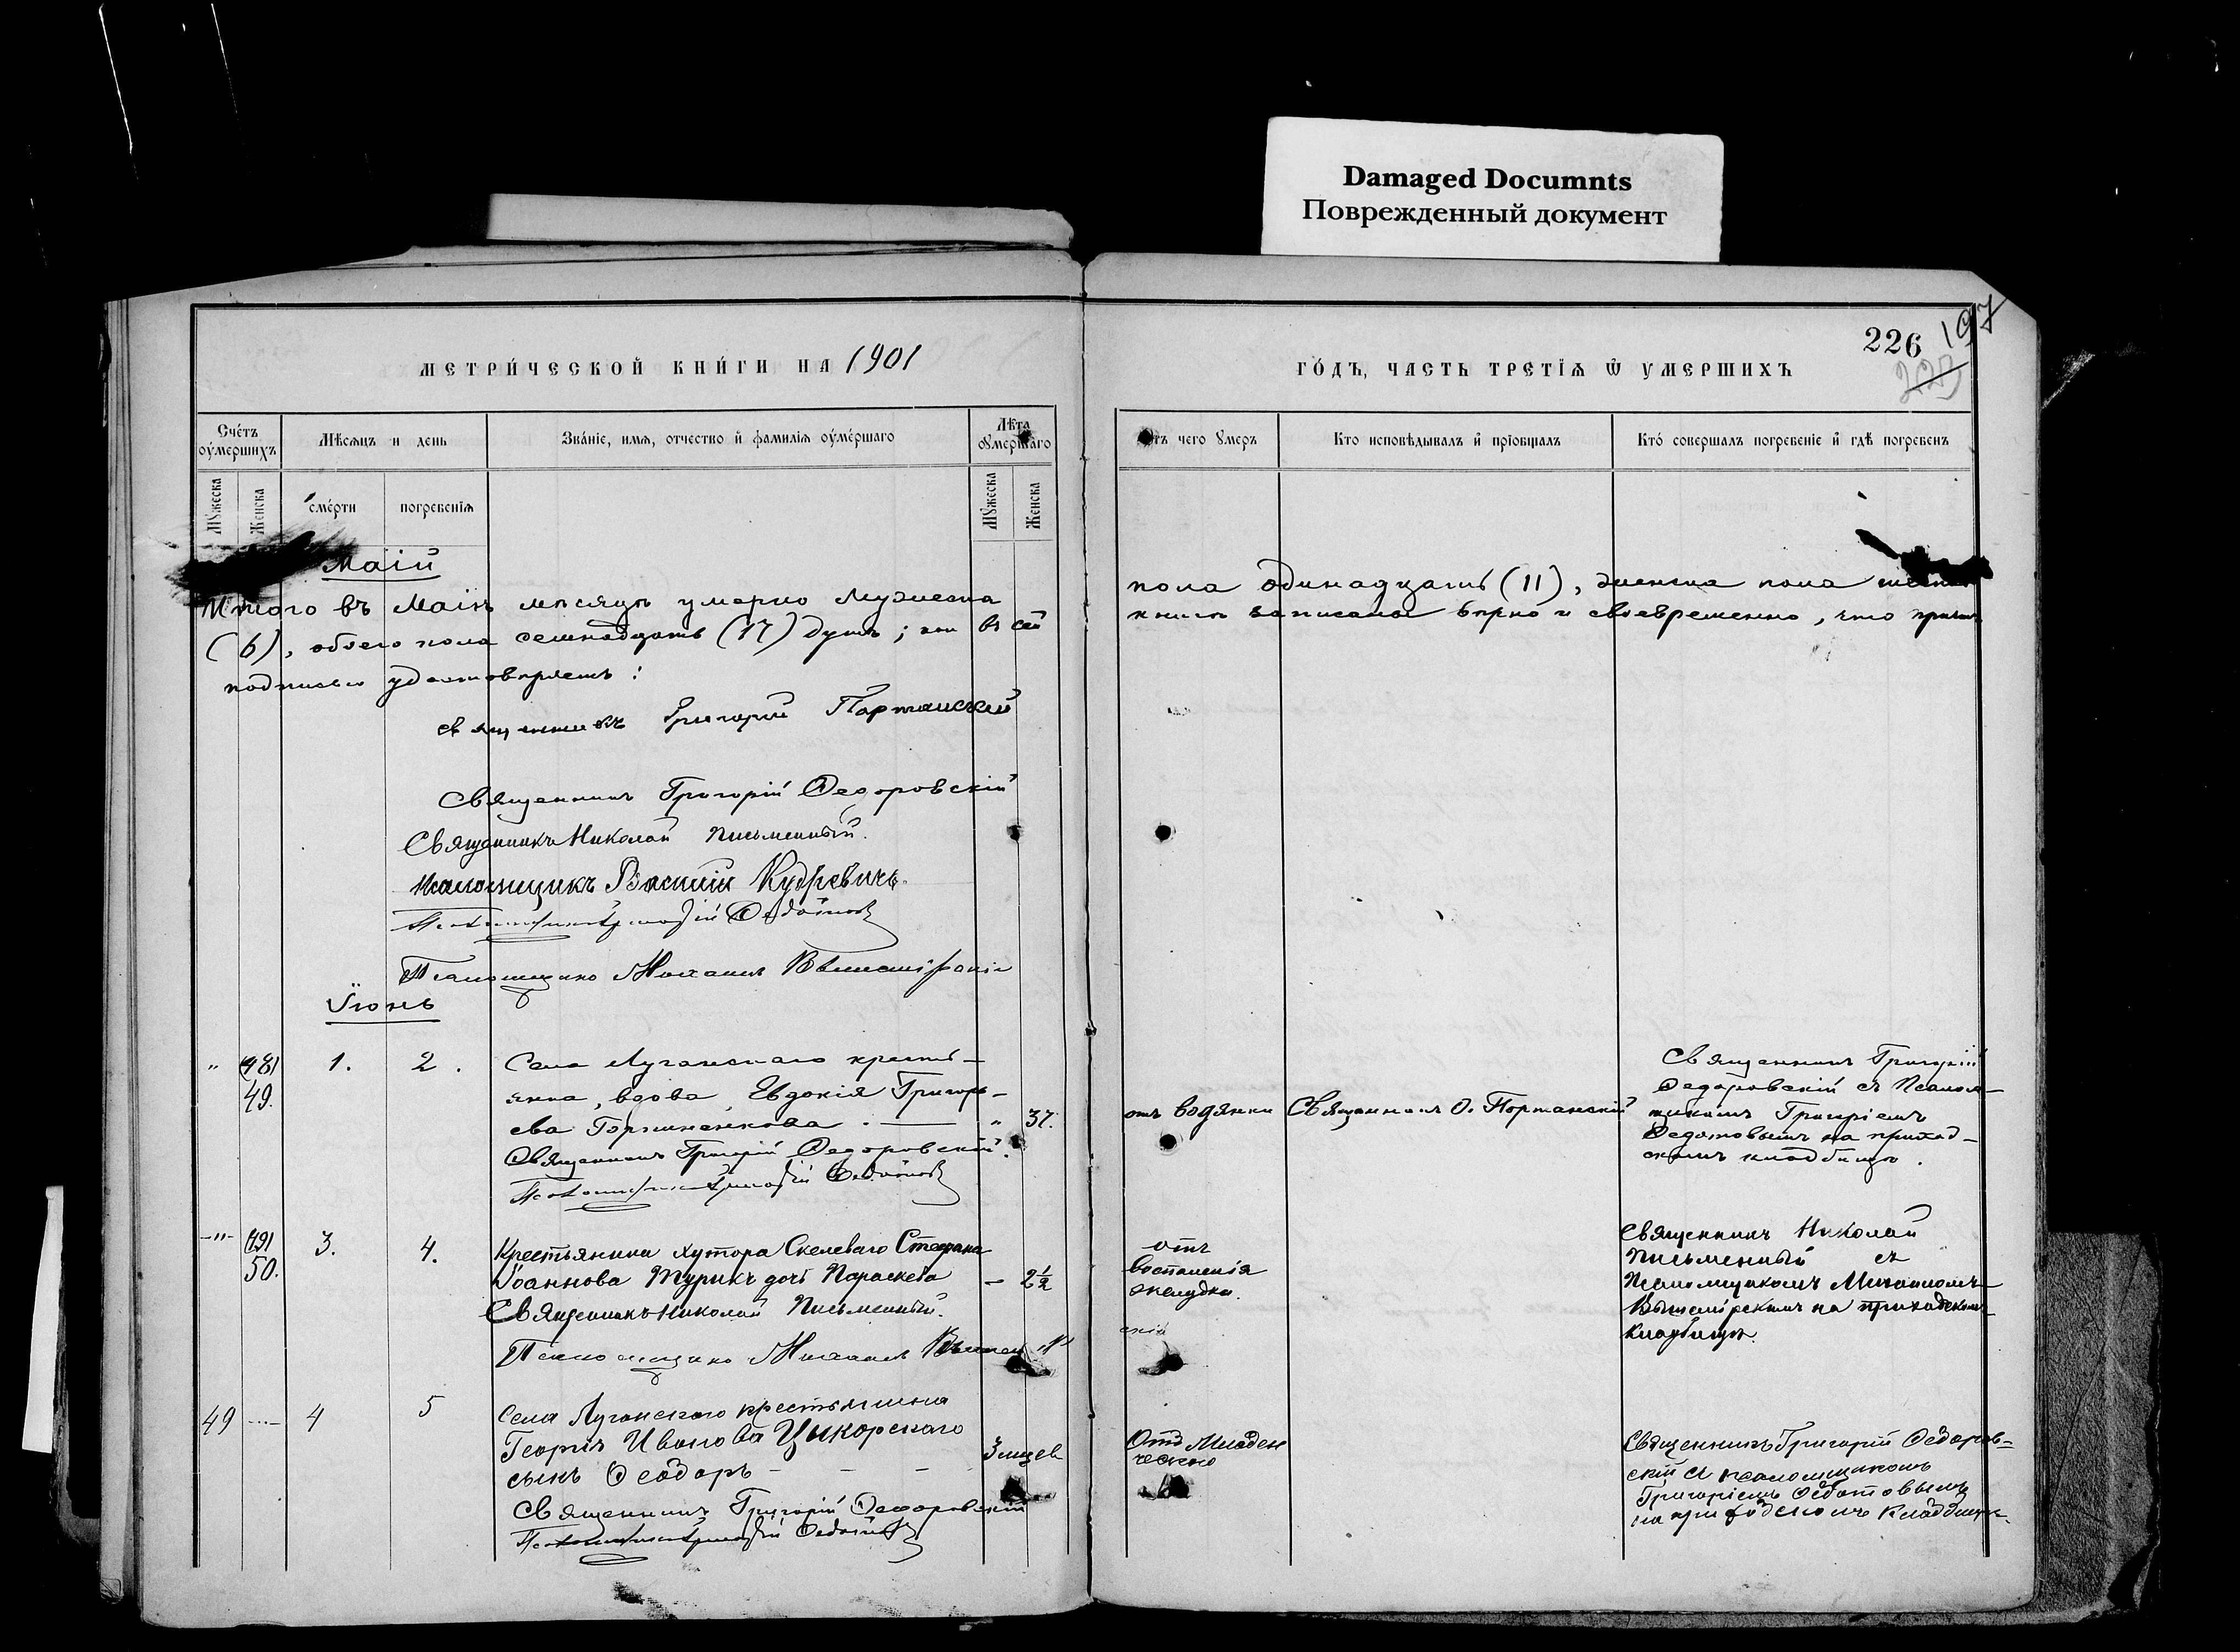 Damaged Documnts
Поврежденный документ
МЕТРИ́ЧЕСКОЙ КНИ́ГИ НА 1901
ГО́ДЪ, ЧАСТЬ ТРЕТІѦ Ѿ УМЕРШИХЪ
226 197
Сче́тъ оумершихъ
Мѣсяцъ и день
Зва́ніе, имя, отчество и фамилія оуме́ршаго
Лѣта оумершаго
Отъ чего умеръ
Кто исповѣдывалъ и пріобщалъ
Кто́ совершалъ погребеніе и гдѣ погребенъ
Мужеска
Женска
сме́рти
погребенія
Мужеска
Женска
Маій
Итого въ Маіѣ мѣсяцѣ умерло мужеска
пола одинадцать (11), женска пола шесть
(6), обоего пола семнадцать (17) душъ; въ сей
книгѣ записаны вѣрно и своевременно, что причтъ
подписью удостовѣряетъ:
священникъ Григорій Портанскій
Священникъ Григорій Ѳедоровскій
Священникъ Николай Письменный.
Псаломщикъ Василій Кудревичъ.
Псаломщикъ Григорій Ѳедотовъ
Псаломщикъ Михаилъ
Іюнь
" 49. 1. 2.
Села Луганскаго кресть-
янка, вдова, Евдокія Григорь-
ева " 37.
Священникъ Григорій Ѳедоровскій.
Псаломщикъ Григорій Ѳедотовъ
отъ водянки
Священникъ Г. Портанскій
Священникъ Григорій
Ѳедоровскій съ Псалом-
щикомъ Григоріемъ
Ѳедотовымъ на приход-
скомъ кладбищѣ.
-"- 50. 3. 4.
Крестьянина хутора Скелеваго Стефана
Іоаннова Турикъ дочь Параскева — 2½
Священникъ Николай Письменный.
Псаломщикъ Михаилъ
отъ
воспаленія
желудка.
Священникъ Николай
Письменный съ
Псаломщикомъ Михаиломъ
на приходскомъ
кладбищѣ.
49 4 5
Села Луганскаго крестьянина
Георгія Иванова Цикорскаго
сынъ Ѳеодоръ - - - 3 мцев
Священникъ Григорій Ѳедоровскій
Псаломщикъ Григорій Ѳедотовъ
Отъ младен
ческой
Священникъ Григорій Ѳедоров-
скій съ псаломщикомъ
Григоріемъ Ѳедотовымъ
на приходскомъ кладбищѣ.